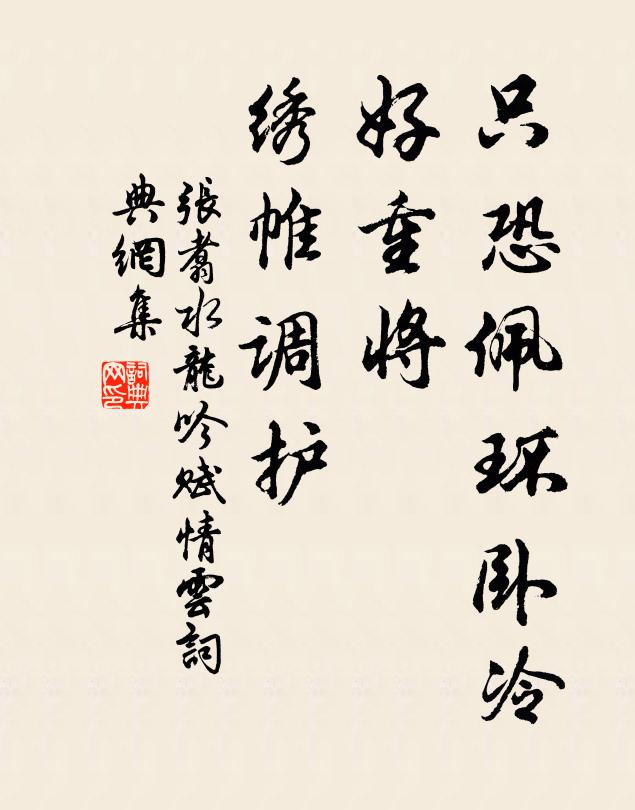 只恐佩环卧冷
好重将
绣帷调护
張翥水龍吟賦情雲詞
典網集
詞典
网印